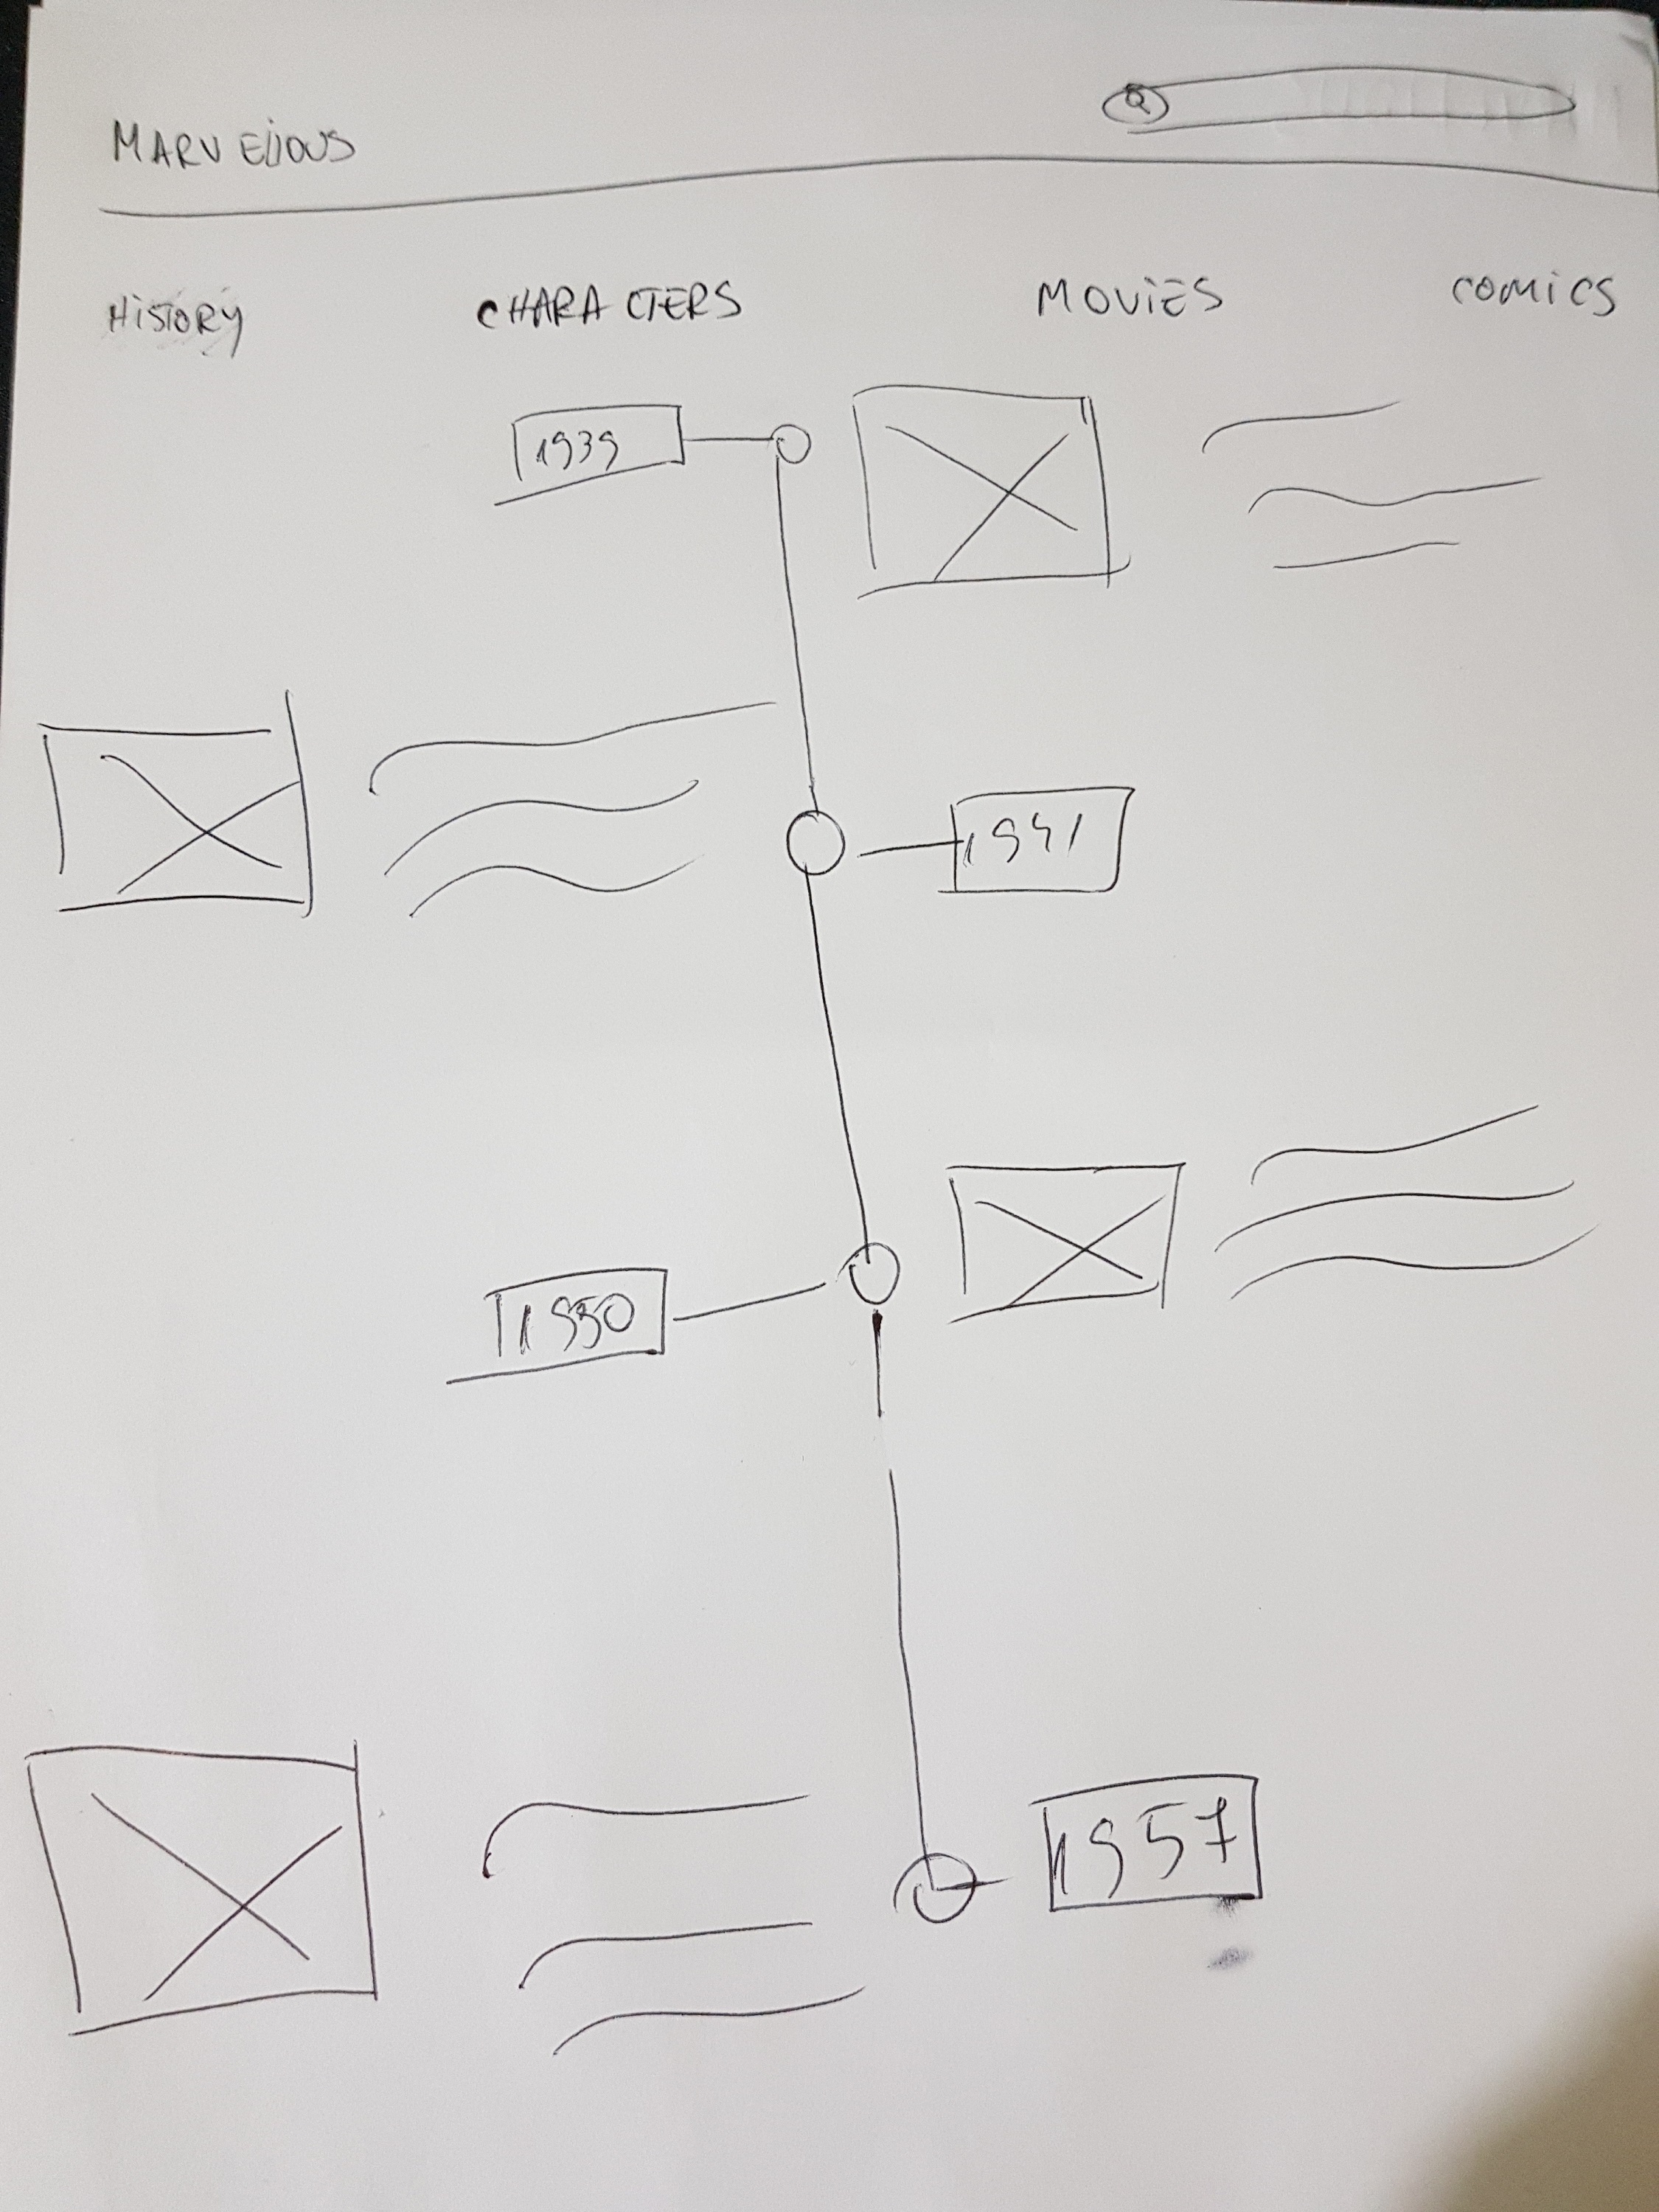 MARVELLOUS
HISTORY CHARACTERS MOVIES COMICS
1939
1941
1950
1957